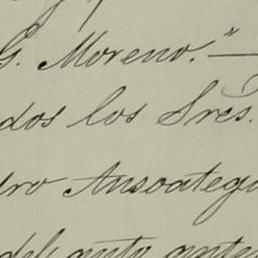 G. Moreno."—
dos los Sres.
dro Ansoategui
del auto ante